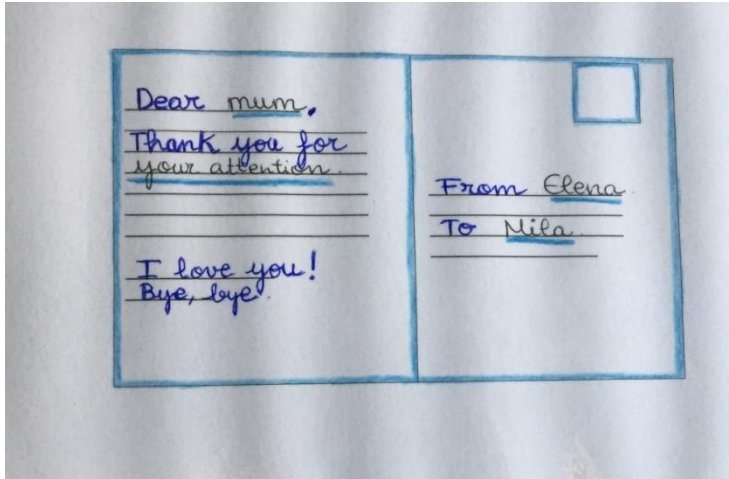 Dear mum,
Thank you for
your attention.
I love you!
Bye, bye.
From Elena
To Mila